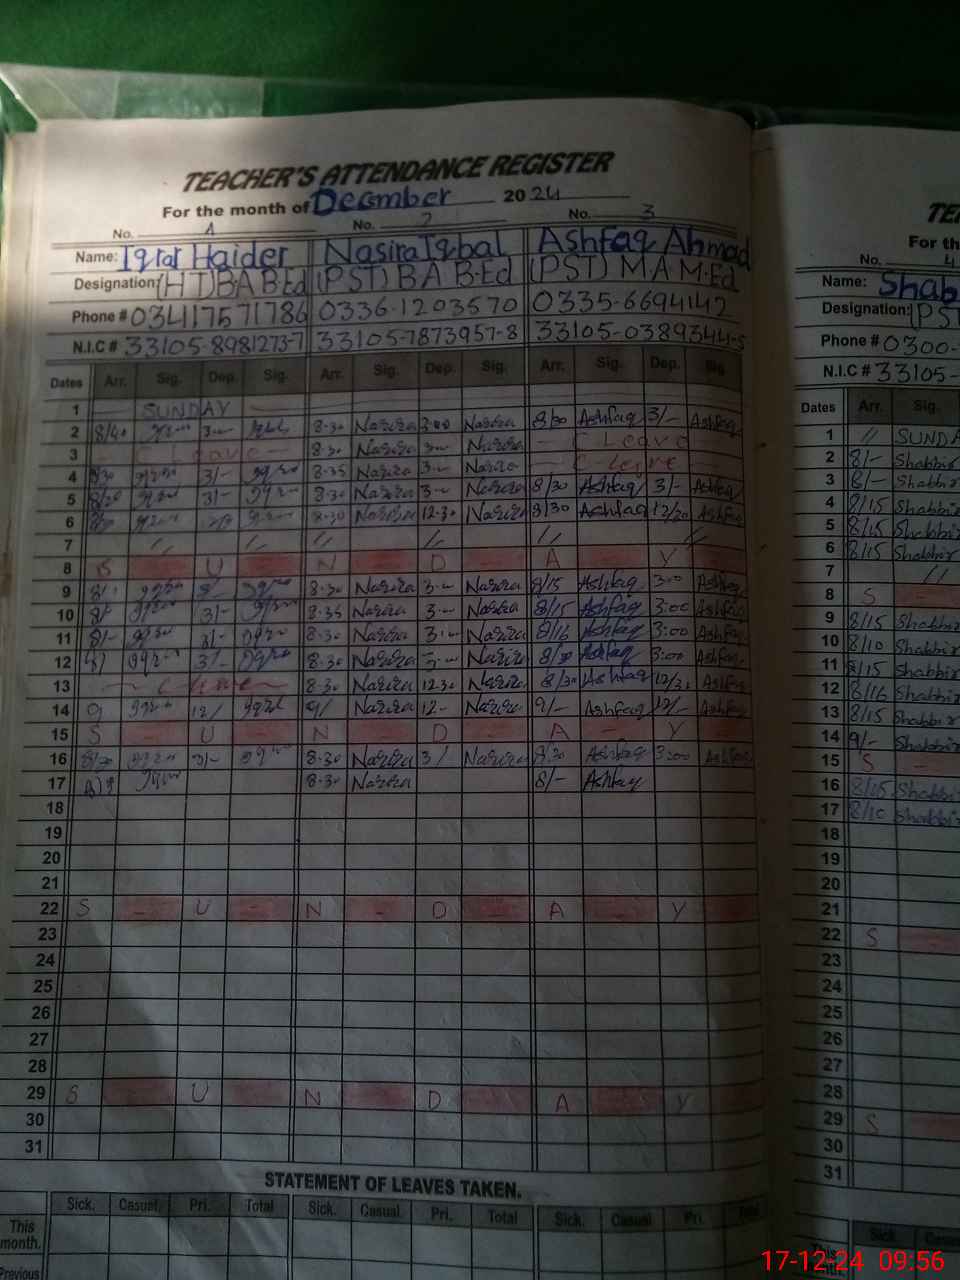 TEACHER'S ATTENDANCE REGISTER
For the month of December 2024
No. 1 No. 2 No. 3
Name: Iqrar Haider Nasira Iqbal Ashfaq Ahmad
Designation: (HT) B.A B.Ed (PST) B A B.Ed (PST) M.A M.Ed
Phone # 03417571786 0336-1203570 0335-6694142
N.I.C # 33105-8981273-7 33105-7873957-8 33105-0389344-5
Dates Arr. Sig. Dep. Sig. Arr. Sig. Dep. Sig. Arr. Sig. Dep. Sig
1 SUNDAY
2 8/40 8-30 Nasira 3-00 Nasira 8/30 Ashfaq 3/- Ashfaq
3 C Leave 8-30 Nasira Nasira C Leave
4 8/30 3/- 8-35 Nasira Nasira C-leave
5 8/30 3/- 8-30 Nasira Nasira 8/30 Ashfaq 3/- Ashfaq
6 8-30 Nasira 12-30 Nasira 8/30 Ashfaq 12/30 Ashfaq
7 // // // // // //
8 S - U - N - D - A - Y
9 8-30 Nasira Nasira 8/15 Ashfaq 3:00 Ashfaq
10 3/- 8-35 Nasira Nasira 8/15 Ashfaq 3:00 Ashfaq
11 8/- 3/- 8-30 Nasira Nasira 8/16 Ashfaq 3:00 Ashfaq
12 3/- 8-30 Nasira Nasira 8/30 Ashfaq 3:00 Ashfaq
13 8-30 Nasira 12-30 Nasira 8/30 Ashfaq 12/30 Ashfaq
14 9 12/ 9/ Nasira 12- Nasira 9/- Ashfaq 12/- Ashfaq
15 S - U - N - D - A - Y
16 8/30 3/- 8-30 Nasira 3/ Nasira 8/30 Ashfaq 3:00 Ashfaq
17 8-30 Nasira 8/- Ashfaq
18
19
20
21
22 S - U - N - D - A - Y
23
24
25
26
27
28
29 S U N D A Y
30
31
STATEMENT OF LEAVES TAKEN.
Sick. Casual. Pri. Total Sick. Casual Pri. Total Sick. Casual Pri. Total
This month.
Previous
TE
For th
No. 4
Name: Shab
Designation: (PST
Phone # 0300-
N.I.C # 33105-
Dates Arr. Sig.
1 // SUND
2 8/- Shabbir
3 8/- Shabbir
4 8/15 Shabbir
5 8/15 Shabbir
6 8/15 Shabbir
7 //
8 S -
9 8/15 Shabbir
10 8/10 Shabbir
11 8/15 Shabbir
12 8/16 Shabbir
13 8/15 Shabbir
14 9/- Shabbir
15 S -
16 8/15 Shabbi
17 8/10 Shabbir
18
19
20
21
22 S
23
24
25
26
27
28
29 S
30
31
Sick. Casu
This
17-12-24 09:56